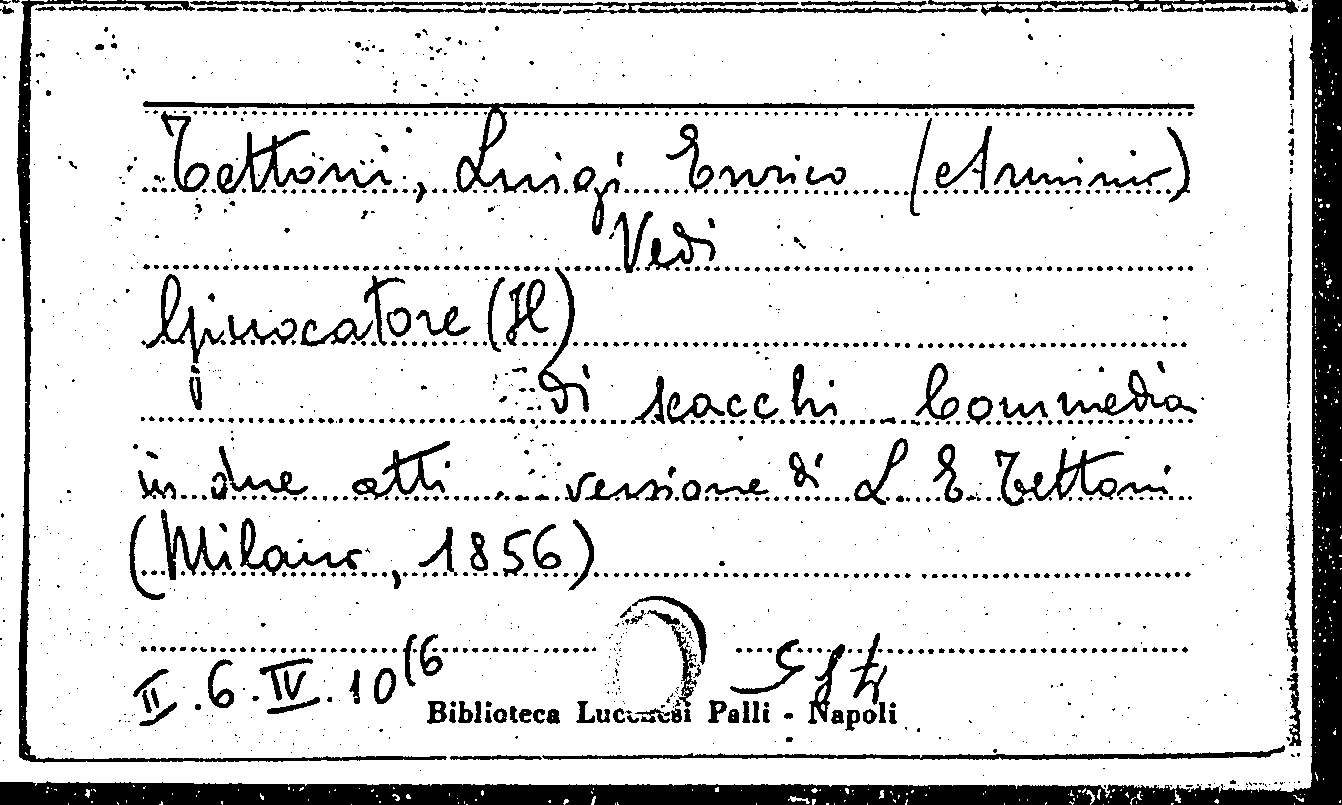 Tettoni, Luigi Enrico (Arminio)
Vedi
Giuocatore (Il)
di scacchi Commedia
in due atti ... versione di L. E. Tettoni
(Milano, 1856)
II.6.IV.10(6
Biblioteca Lucchesi Palli - Napoli